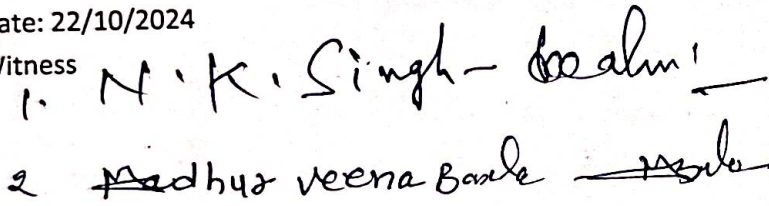 ate: 22/10/2024
Vitness
1. N.K. Singh -
2 Madhur veena